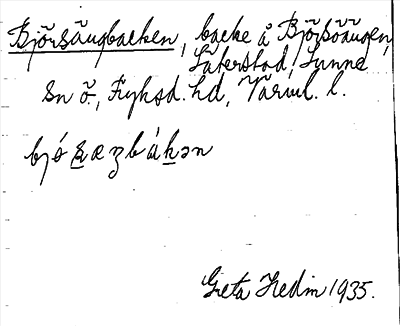 Björsängbacken, backe å Björsöängen,
Säterstad, Sunne
sn ö., Fryksd. hd, Värml. l.
bjó s̲æŋbák̲ən
Greta Hedin 1935.